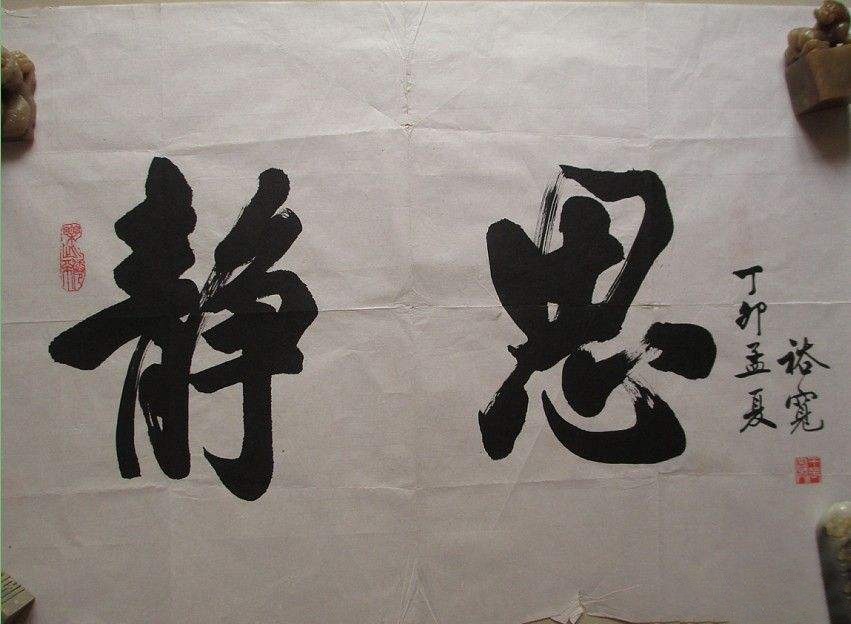 静思
丁卯孟夏
裕寬